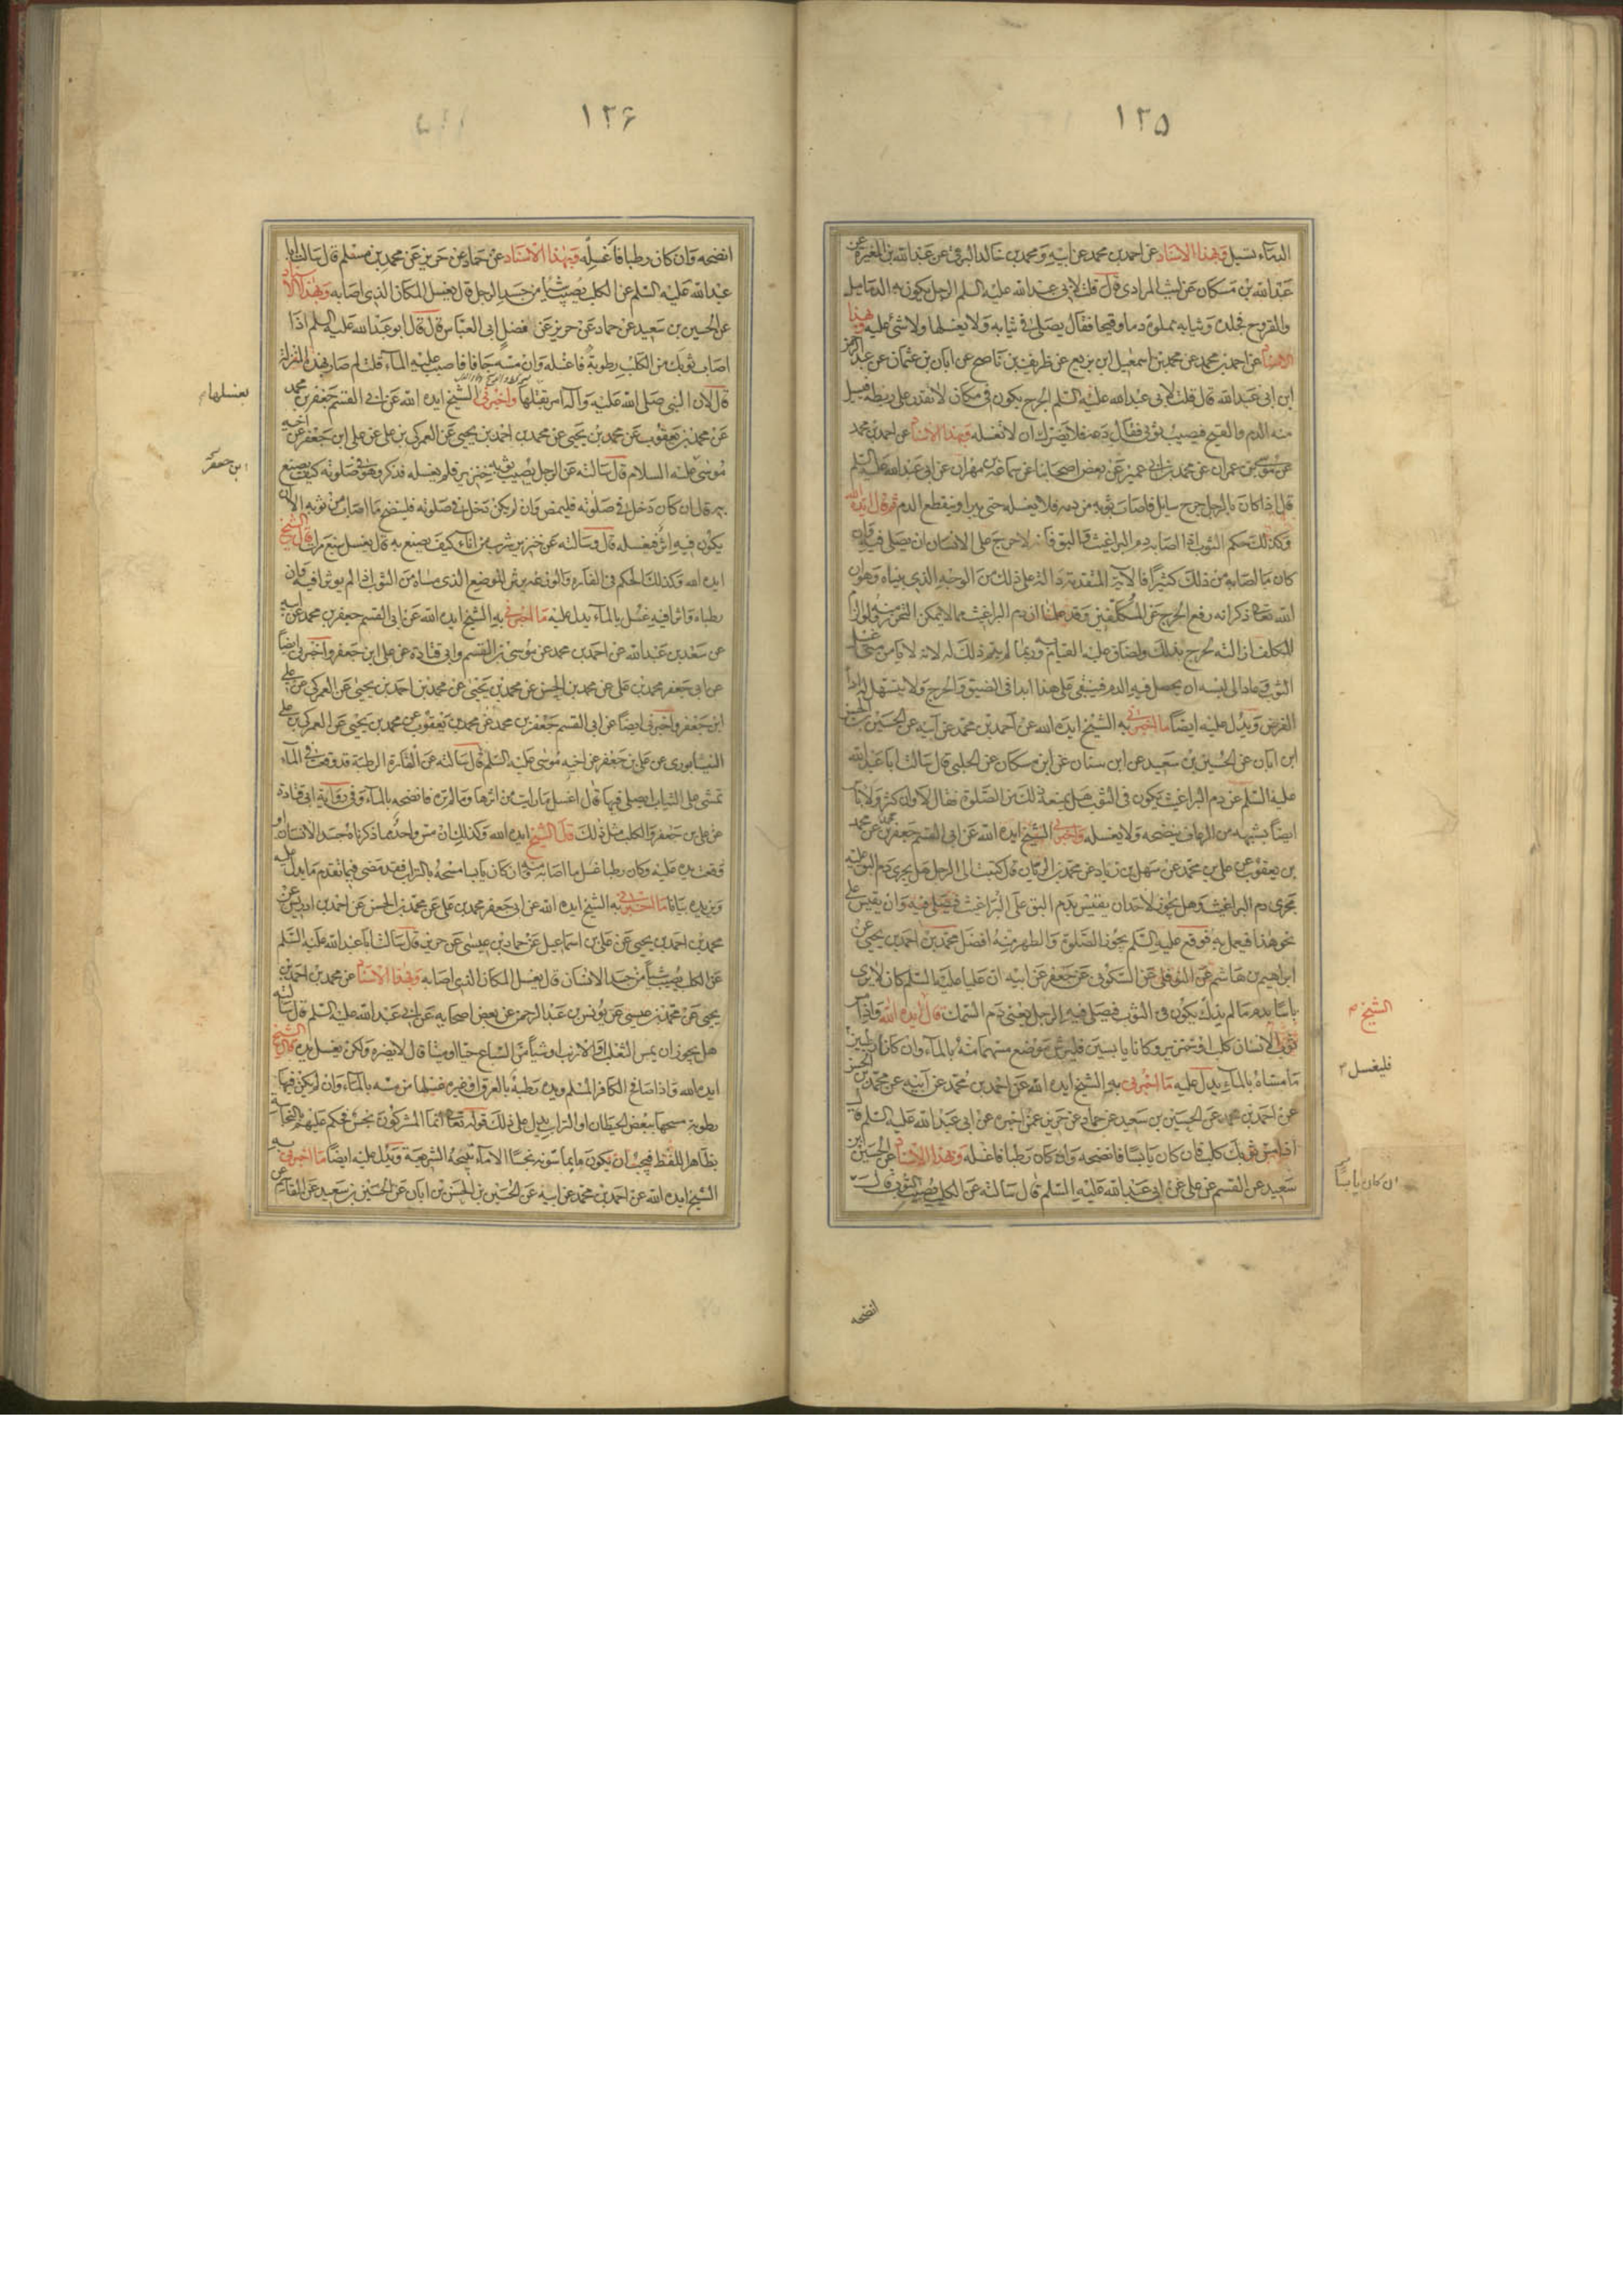 ١٢٥
الدماء تسيل وبهذا الاسناد عن احمد بن محمد عن ابيه ومحمد بن خالد البرقي عن عبد الله بن المغيرة عن
عبد الله بن مسكان عن ليث المرادي قال قلت لابي عبد الله عليه السلم الرجل يكون به الدماميل
والقروح فجلده وثيابه مملوة دما وقيحا فقال يصلى في ثيابه ولا يغسلها ولا شئ عليه وبهذا
الاسناد عن احمد بن محمد عن محمد بن اسمعيل ابن بزيع عن ظريف بن ناصح عن ابان بن عثمان عن عبد الرحمن
ابن ابي عبد الله قال قلت لابي عبد الله عليه السلم الجرح يكون في مكان لا نقدر على ربطه فيسيل
منه الدم والقيح فيصيب ثوبي فقال دعه فلا يضرك ان لا تغسله وبهذا الاسناد عن احمد بن محمد
عن موسى بن عمران عن محمد بن ابي عمير عن بعض اصحابنا عن سماعة بن مهران عن ابي عبد الله عليه السلم
قال اذا كان بالرجل جرح سايل فاصاب ثوبه من دمه فلا يغسله حتى يبرا وينقطع الدم ثم قال ايده الله
وكذلك حكم الثوب اذا اصابه دم البراغيث والبق فانه لا حرج على الانسان ان يصلى فيه وان
كان ما اصابه من ذلك كثيرا فالآية المتقدمة دالة على ذلك من الوجه الذي بيناه وهو ان
الله تعالى ذكر انه رفع الحرج عن المكلفين وقد علمنا ان دم البراغيث مما لا يمكن التحرز منه ولو الزم
المكلف ازالته لحرج بذلك ولضاق عليه القيام به وربما لم يتم ذلك له لانه لا يامن متى غسل
الثوب وعاد الى لبسه ان يحصل فيه الدم فينبغى على هذا ابدا في الضيق والحرج ولا يتسهل له اداء
الفرض ويدل عليه ايضا ما اخبرني به الشيخ ايده الله عن احمد بن محمد عن ابيه عن الحسين بن الحسن
ابن ابان عن الحسين بن سعيد عن ابن سنان عن ابن مسكان عن الحلبي قال سالت ابا عبد الله
عليه السلم عن دم البراغيث يكون في الثوب هل يمنعه ذلك من الصلوة فقال لا وان كثر ولا باس
ايضا بشبهه من الرعاف ينضحه ولا يغسله واخبرني الشيخ ايده الله عن ابي القسم جعفر بن محمد عن محمد
بن يعقوب عن علي بن محمد عن سهل بن زياد عن محمد بن الريان قال كتبت الى الرجل هل يجرى دم البق عليه
مجرى دم البراغيث وهل يجوز لاحد ان يقيس بدم البق على البراغيث فيصلى فيه وان يقيس على
نحو هذا فيعمل به فوقع عليه السلم يجوز الصلوة والطهر منه افضل محمد بن احمد بن يحيى عن
ابراهيم بن هاشم عن النوفلي عن السكوني عن جعفر عن ابيه ان عليا عليه السلم كان لا يرى
باسا بدم ما لم يذك يكون في الثوب فيصلى فيه الرجل يعنى دم السمك قال ايده الله واذا مس
ثوب الانسان كلب او خنزير وكانا يابسين فليرش موضع مسهما منه بالماء وان كانا رطبين
ما مساه بالماء يدل عليه ما اخبرني به الشيخ ايده الله عن احمد بن محمد عن ابيه عن محمد بن الحسن
عن احمد بن محمد عن الحسين بن سعيد عن حماد عن حريز عمن اخبره عن ابي عبد الله عليه السلم قال
اذا مس ثوبك كلب فان كان يابسا فانضحه وان كان رطبا فاغسله وبهذا الاسناد عن الحسين ابن
سعيد عن القسم عن علي عن ابي عبد الله عليه السلم قال سالته عن الكلب يصيب الثوب قال
الشيخ م
فليغسل
ان كان يابسا
انضحه
١٢۶
انضحه وان كان رطبا فاغسله وبهذا الاسناد عن حماد عن حريز عن محمد بن مسلم قال سالت ابا
عبد الله عليه السلم عن الكلب يصيب شيأ من جسد الرجل قال يغسل المكان الذي اصابه وبهذا الاسناد
عن الحسين بن سعيد عن حماد عن حريز عن الفضل ابي العباس قال قال ابو عبد الله عليه السلم اذا
اصاب ثوبك من الكلب رطوبة فاغسله وان مسه جافا فاصبب عليه الماء قلت لم صار بهذه المنزلة
قال لان النبي صلى الله عليه وآله امر بقتلها واخبرني الشيخ ايده الله عن ابي القسم جعفر بن محمد
عن محمد بن يعقوب عن محمد بن يحيى عن محمد بن احمد بن يحيى عن العمركي بن علي عن علي ابن جعفر عن اخيه
موسى عليه السلام قال سالته عن الرجل يصيب ثوبه خنزير فلم يغسله فذكر وهو في صلوته كيف يصنع
به قال ان كان دخل في صلوته فليمض وان لم يكن دخل في صلوته فلينضح ما اصاب من ثوبه الا ان
يكون فيه اثر فيغسله قال وسالته عن خنزير شرب من اناء كيف يصنع به قال يغسل سبع مرات قال الشيخ
ايده الله وكذلك الحكم في الفارة والوزغة يرش الموضع الذي مساه من الثوب اذا لم يؤثرا فيه وان
رطباه واثرا فيه غسل بالماء يدل عليه ما اخبرني به الشيخ ايده الله عن ابي القسم جعفر بن محمد عن ابيه
عن سعد بن عبد الله عن احمد بن محمد عن موسى بن القسم وابي قتادة عن علي ابن جعفر واخبرني ايضا
عن ابي جعفر محمد بن علي عن محمد بن الحسن عن محمد بن يحيى عن محمد بن احمد بن يحيى عن العمركي عن علي
ابن جعفر واخبرني ايضا عن ابي القسم جعفر بن محمد عن محمد بن يعقوب عن محمد بن يحيى عن العمركي بن علي
النيسابوري عن علي بن جعفر عن اخيه موسى عليه السلم قال سالته عن الفارة الرطبة قد وقعت في الماء
تمشى على الثياب ايصلى فيها قال اغسل ما رايت من اثرها وما لم تره فانضحه بالماء وفي رواية ابي قتادة
عن علي بن جعفر والكلب مثل ذلك قال الشيخ ايده الله وكذلك ان مس واحد مما ذكرناه جسد الانسان او
وقعت يده عليه وكان رطبا غسل ما اصابه منه وان كان يابسا مسحه بالتراب فقد مضى فيما تقدم ما يدل عليه
ويزيده بيانا ما اخبرني به الشيخ ايده الله عن ابي جعفر محمد بن علي عن محمد بن الحسن عن احمد بن ادريس عن
محمد بن احمد بن يحيى عن علي بن اسماعيل عن حماد بن عيسى عن حريز قال سالت ابا عبد الله عليه السلم
عن الكلب يصيب شيأ من جسد الانسان قال يغسل المكان الذي اصابه وبهذا الاسناد عن محمد بن احمد بن
يحيى عن محمد بن عيسى عن يونس بن عبد الرحمن عن بعض اصحابه عن ابي عبد الله عليه السلم قال سالته
هل يجوز ان يمس الثعلب والارنب او شيأ من السباع حيا او ميتا قال لا يضره ولكن يغسل يده قال الشيخ
ايده الله واذا صافح الكافر المسلم ويده رطبة بالعرق او غيره غسلها من مسه بالماء وان لم يكن فيها
رطوبة مسحها ببعض الحيطان او التراب يدل على ذلك قوله تعالى انما المشركون نجس فحكم عليهم بالنجاسة
بظاهر اللفظ فيجب ان يكون ما يماسونه نجسا الا ما تبيحه الشريعة ويدل عليه ايضا ما اخبرني به
الشيخ ايده الله عن احمد بن محمد عن ابيه عن الحسين بن الحسن بن ابان عن الحسين بن سعيد عن القاسم عن
بغسلها م
ابن جعفر